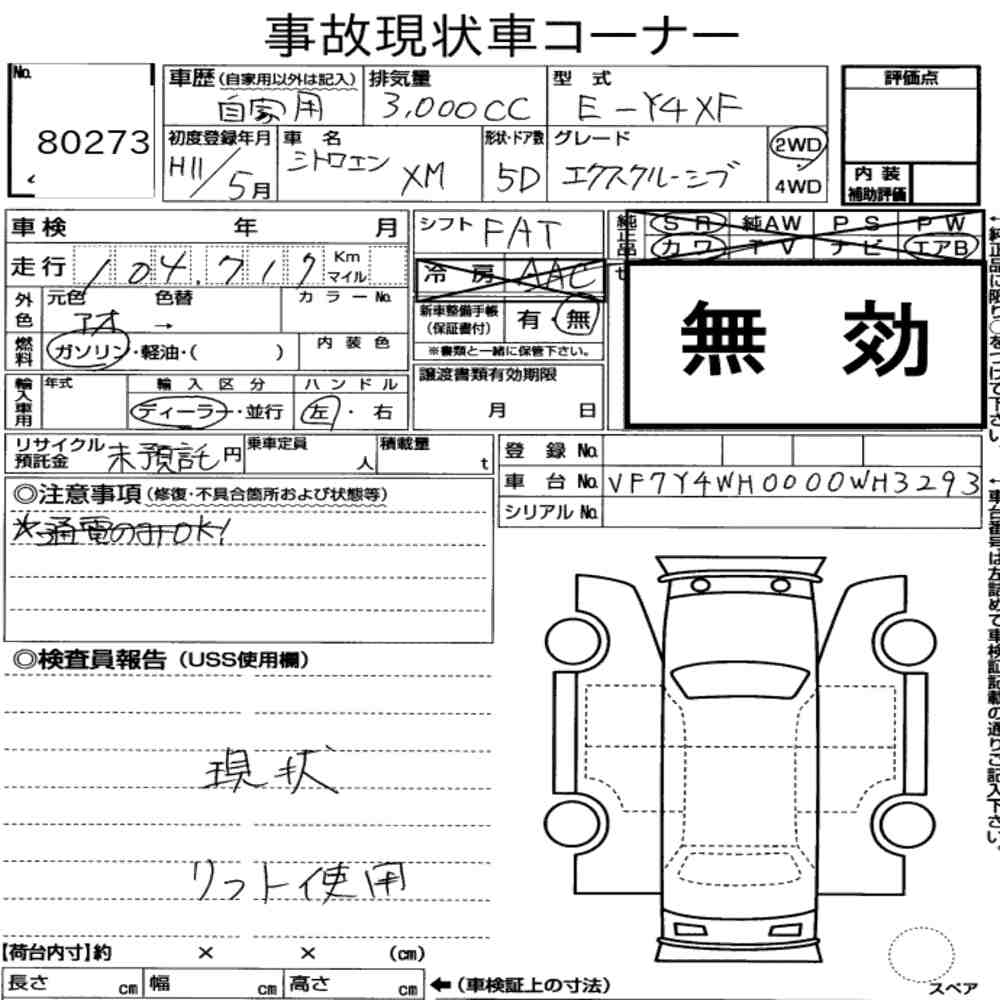 事故現状車コーナー
No. 80273
車歴 (自家用以外は記入) 自家用
排気量 3,000CC
型式 E-Y4XF
評価点
初度登録年月 H11/5月
車名 シトロエン XM
形状・ドア数 5D
グレード エクスクルーシブ
2WD
4WD
内装
補助評価
車検 年 月
シフト FAT
純正品 SR 純AW PS PW
カワ TV ナビ エアB
走行 104,717 Km マイル
冷房 AAC
無効
外色 元色 色替 カラーNo.
アオ →
新車整備手帳
(保証書付) 有・無
※書類と一緒に保管下さい。
燃料 ガソリン・軽油・( ) 内装色
輸入車用 年式 輸入区分 ハンドル
ディーラー・並行 左・右
譲渡書類有効期限
月 日
リサイクル
預託金 未預託円
乗車定員 人
積載量 t
登録No.
車台No. VF7Y4WH0000WH3293
シリアルNo.
◎注意事項 (修復・不具合箇所および状態等)
※通電のみOK!
◎検査員報告 (USS使用欄)
現状
リフト使用
【荷台内寸】約 × × (cm)
長さ cm 幅 cm 高さ cm ←(車検証上の寸法)
スペア
←純正品に限り○をつけて下さい。
←車台番号は左詰めで車検証記載の通りご記入下さい。